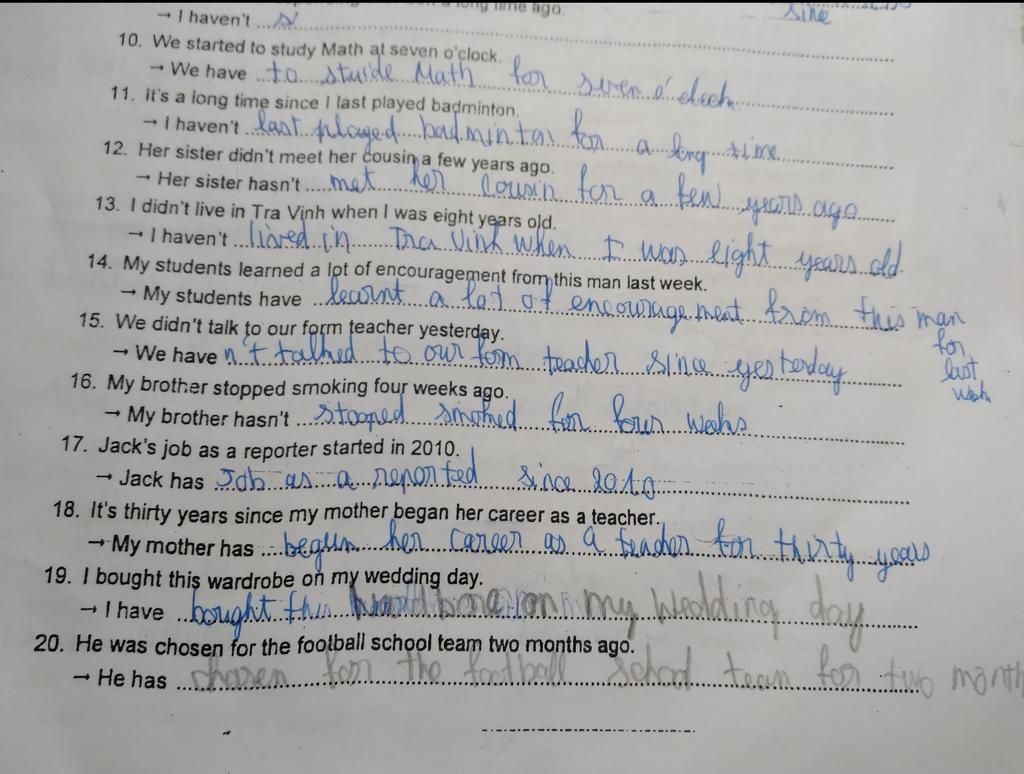 a long time ago.
→ I haven't s
sine
10. We started to study Math at seven o'clock.
→ We have to stuide Math for seven o'clock
11. It's a long time since I last played badminton.
→ I haven't last played badminton for a long time
12. Her sister didn't meet her cousin a few years ago.
→ Her sister hasn't met her cousin for a few years ago
13. I didn't live in Tra Vinh when I was eight years old.
→ I haven't lived in Tra Vinh when I was eight years old
14. My students learned a lot of encouragement from this man last week.
→ My students have learnt a lot of encouragement from this man
for
last
week
15. We didn't talk to our form teacher yesterday.
→ We have n't talked to our form teacher since yesterday
16. My brother stopped smoking four weeks ago.
→ My brother hasn't stooped smoked for four weeks
17. Jack's job as a reporter started in 2010.
→ Jack has Job as a reported since 2010
18. It's thirty years since my mother began her career as a teacher.
→ My mother has begun her career as a teacher for thirty years
19. I bought this wardrobe on my wedding day.
→ I have bought this on my wedding day
20. He was chosen for the football school team two months ago.
→ He has chosen for the football school team for two month